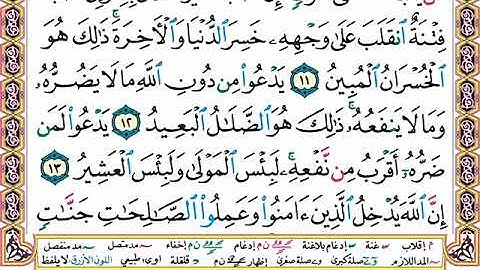 فِتْنَةٌ ٱنقَلَبَ عَلَىٰ وَجْهِهِۦ خَسِرَ ٱلدُّنْيَا وَٱلْأَخِرَةَ ۚ ذَٰلِكَ هُوَ
ٱلْخُسْرَانُ ٱلْمُبِينُ ١١ يَدْعُوا۟ مِن دُونِ ٱللَّهِ مَا لَا يَضُرُّهُۥ
وَمَا لَا يَنفَعُهُۥ ۚ ذَٰلِكَ هُوَ ٱلضَّلَٰلُ ٱلْبَعِيدُ ١٢ يَدْعُوا۟ لَمَن
ضَرُّهُۥٓ أَقْرَبُ مِن نَّفْعِهِۦ ۚ لَبِئْسَ ٱلْمَوْلَىٰ وَلَبِئْسَ ٱلْعَشِيرُ ١٣
إِنَّ ٱللَّهَ يُدْخِلُ ٱلَّذِينَ ءَامَنُوا۟ وَعَمِلُوا۟ ٱلصَّٰلِحَٰتِ جَنَّٰتٍ
إقلاب غنة إدغام بلاغنة إدغام إخفاء مد متصل مد منفصل
المد اللازم صلة كبرى صلة صغرى إظهار قلقلة اللون الأزرق لا يلفظ